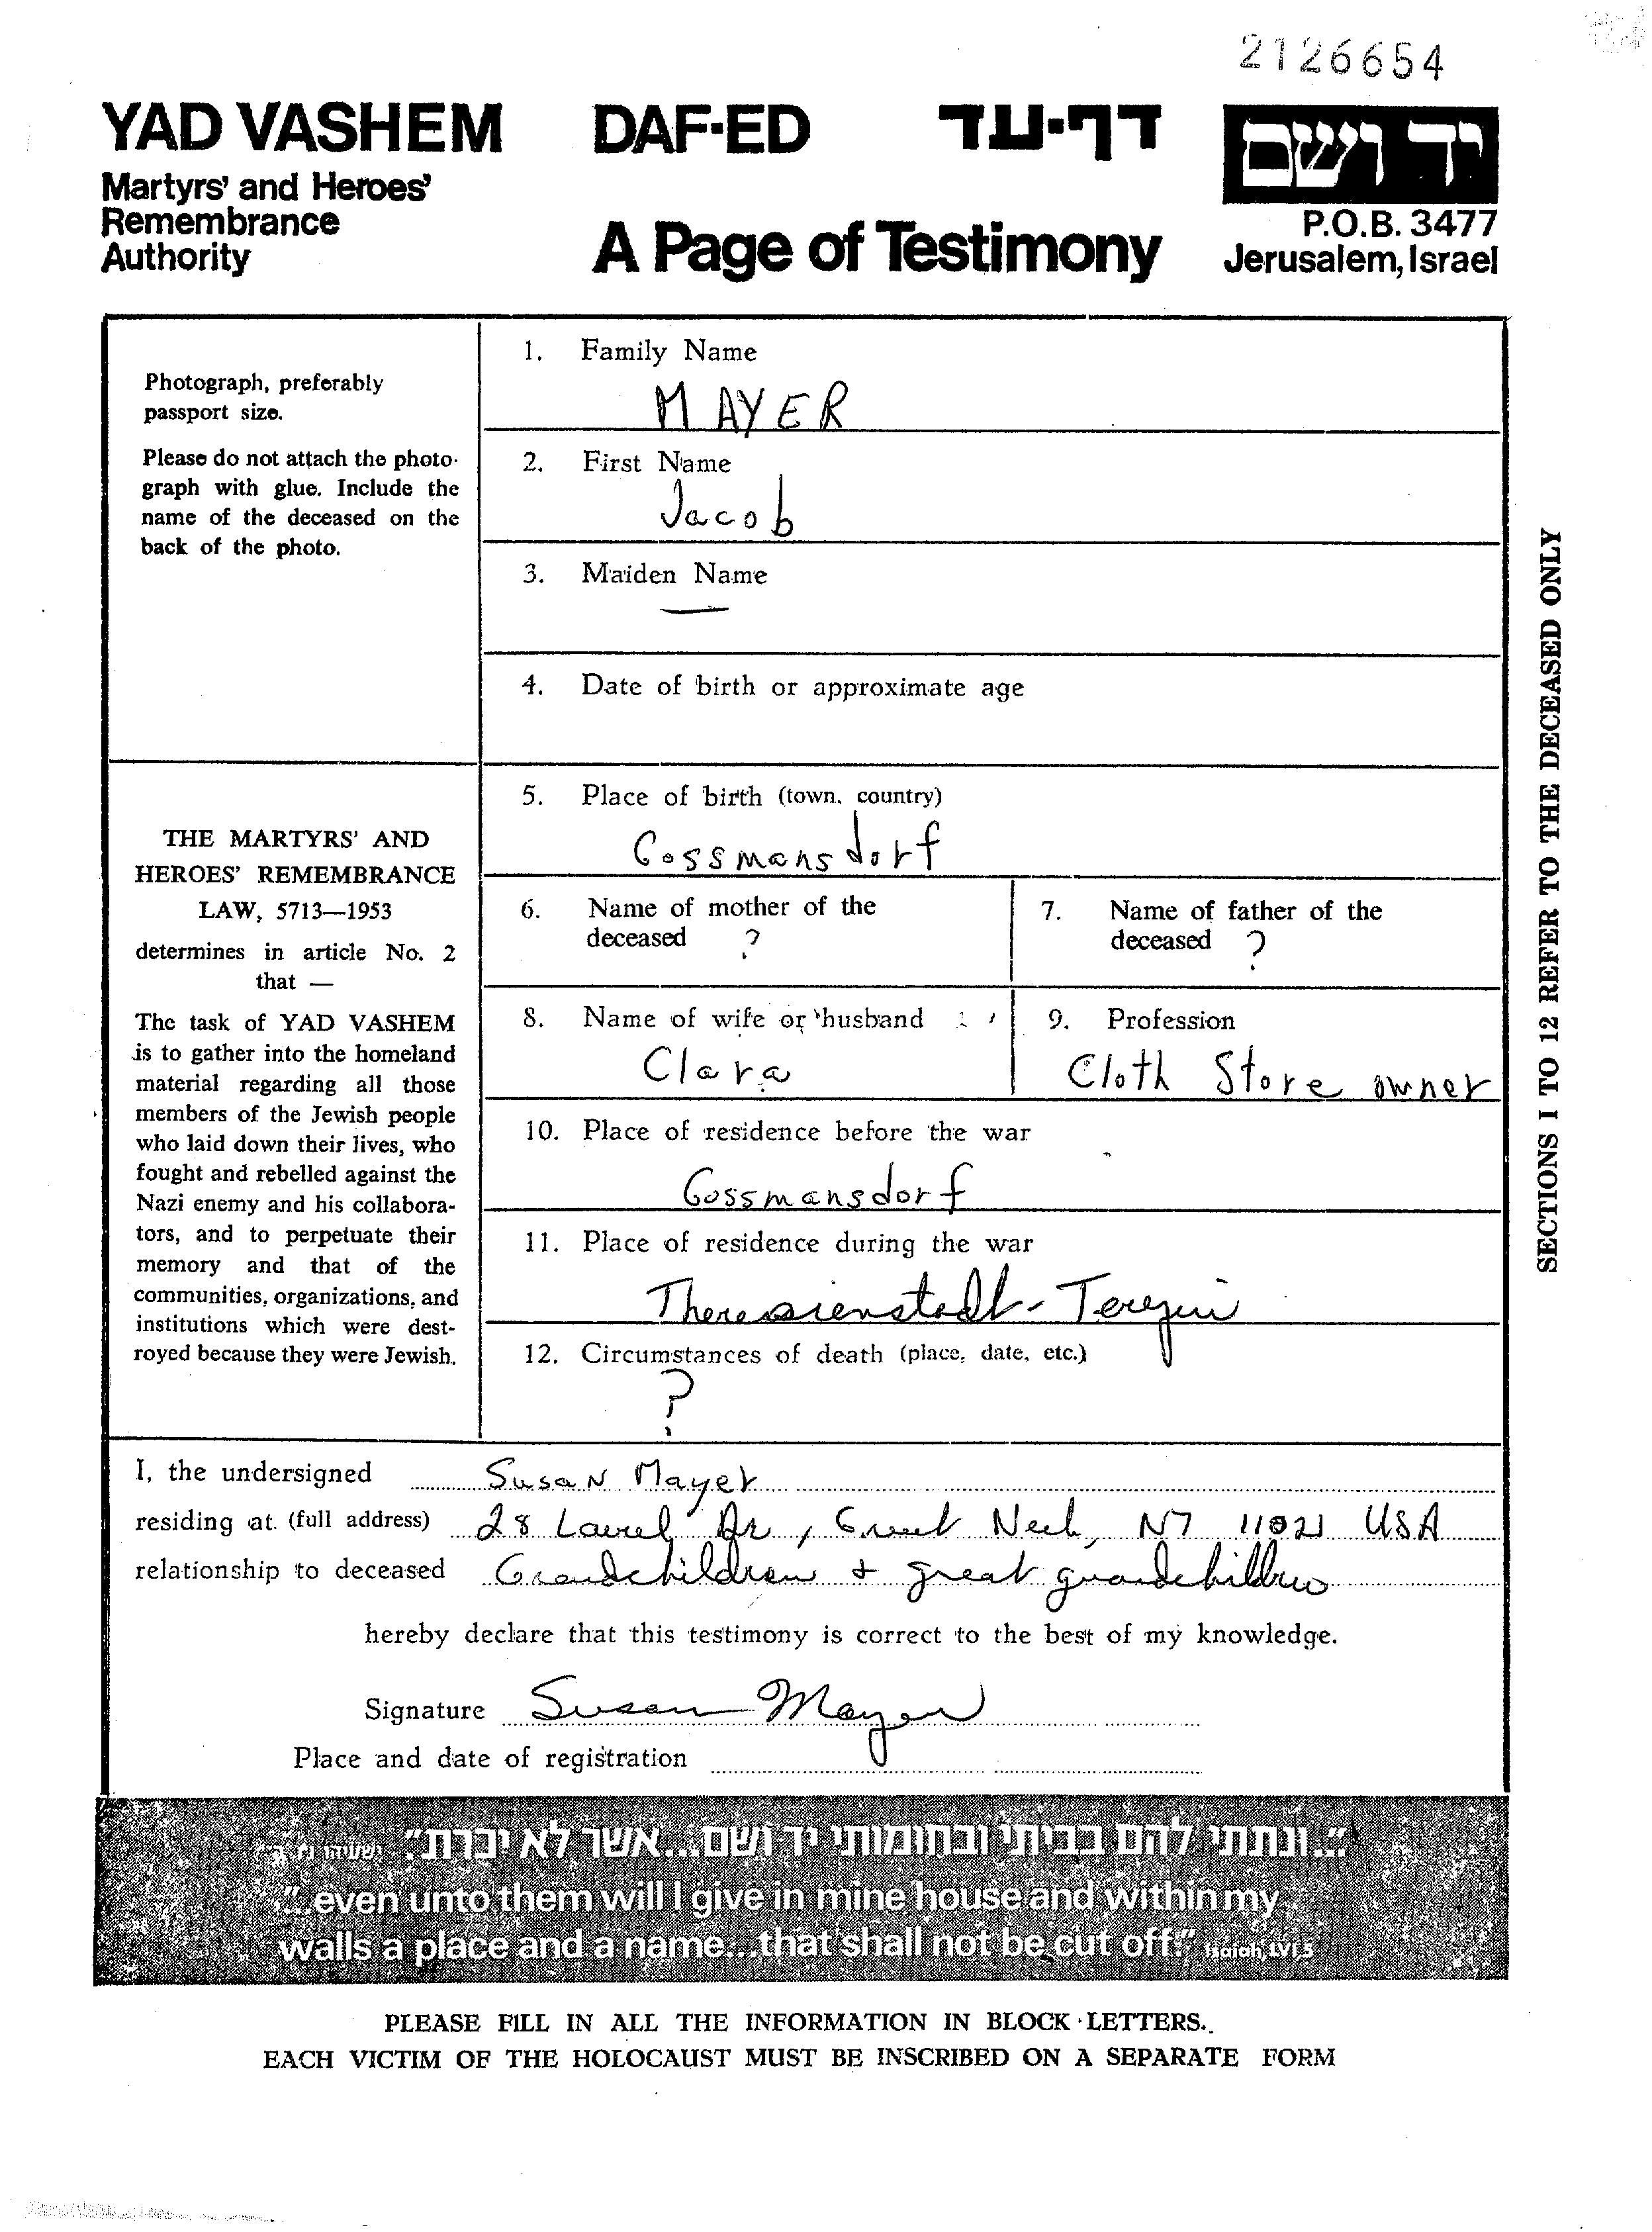 2126654
YAD VASHEM DAF-ED דף-עד יד ושם
Martyrs' and Heroes'
Remembrance
Authority
A Page of Testimony
P.O.B. 3477
Jerusalem, Israel
Photograph, preferably
passport size.
Please do not attach the photo-
graph with glue. Include the
name of the deceased on the
back of the photo.
THE MARTYRS' AND
HEROES' REMEMBRANCE
LAW, 5713—1953
determines in article No. 2
that —
The task of YAD VASHEM
is to gather into the homeland
material regarding all those
members of the Jewish people
who laid down their lives, who
fought and rebelled against the
Nazi enemy and his collabora-
tors, and to perpetuate their
memory and that of the
communities, organizations, and
institutions which were dest-
royed because they were Jewish.
1. Family Name
MAYER
2. First Name
Jacob
3. Maiden Name
—
4. Date of birth or approximate age
5. Place of birth (town, country)
Gossmansdorf
6. Name of mother of the
deceased ?
7. Name of father of the
deceased ?
8. Name of wife or husband
Clara
9. Profession
Cloth Store owner
10. Place of residence before the war
Gossmansdorf
11. Place of residence during the war
Theresienstadt - Terezin
12. Circumstances of death (place, date, etc.)
?
SECTIONS 1 TO 12 REFER TO THE DECEASED ONLY
I, the undersigned Susan Mayer
residing at (full address) 28 Laurel Dr, Great Neck, NY 11021 USA
relationship to deceased Grandchildren + great grandchildren
hereby declare that this testimony is correct to the best of my knowledge.
Signature Susan Mayer
Place and date of registration
"...ונתתי להם בביתי ובחומותי יד ושם...אשר לא יכרת" ישעיהו
"...even unto them will I give in mine house and within my
walls a place and a name...that shall not be cut off." Isaiah, LVI, 5
PLEASE FILL IN ALL THE INFORMATION IN BLOCK LETTERS.
EACH VICTIM OF THE HOLOCAUST MUST BE INSCRIBED ON A SEPARATE FORM